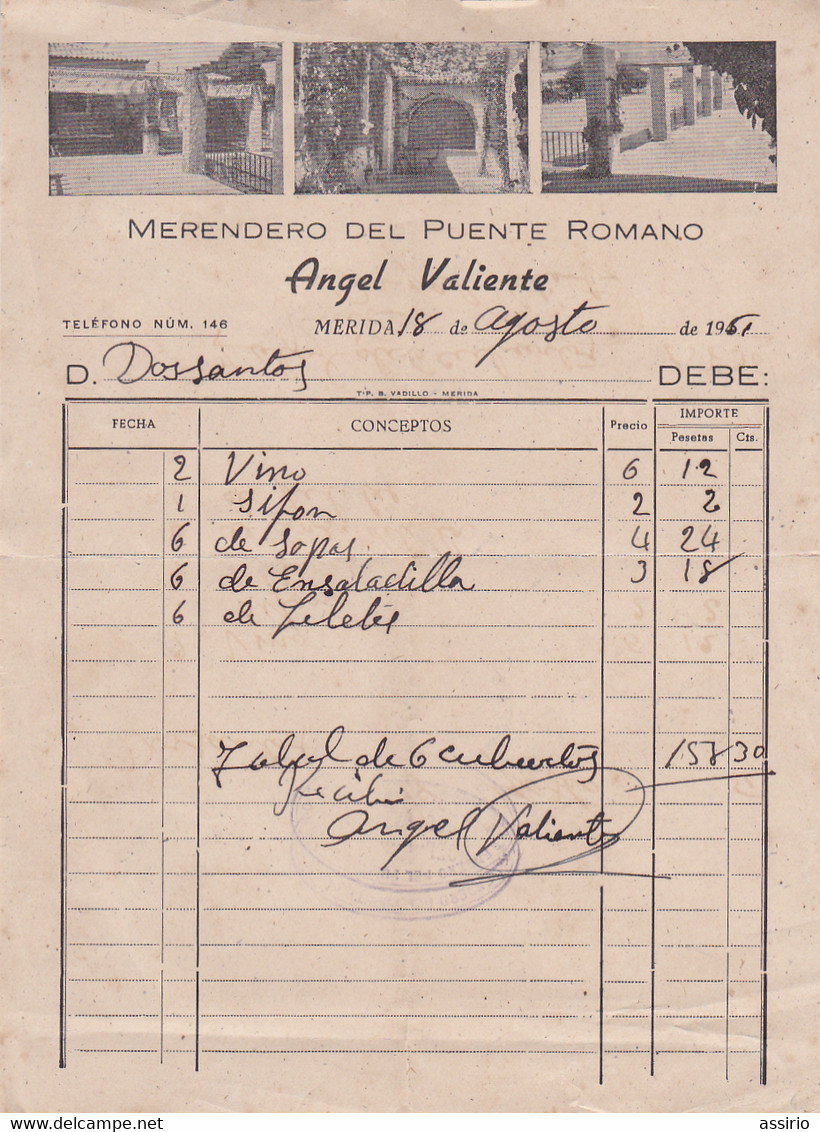 MERENDERO DEL PUENTE ROMANO
Angel Valiente
TELÉFONO NÚM. 146 MERIDA 18 de agosto de 1961
D. Dossantos DEBE:
TIP. B. VADILLO - MERIDA
FECHA CONCEPTOS Precio IMPORTE
Pesetas Cts.
2 Vino 6 12
1 sifon 2 2
6 de sopas 4 24
6 de Ensaladilla 3 18
6 de filetes
Total de 6 cubiertos 158 30
Recibi
Angel Valiente
assirio